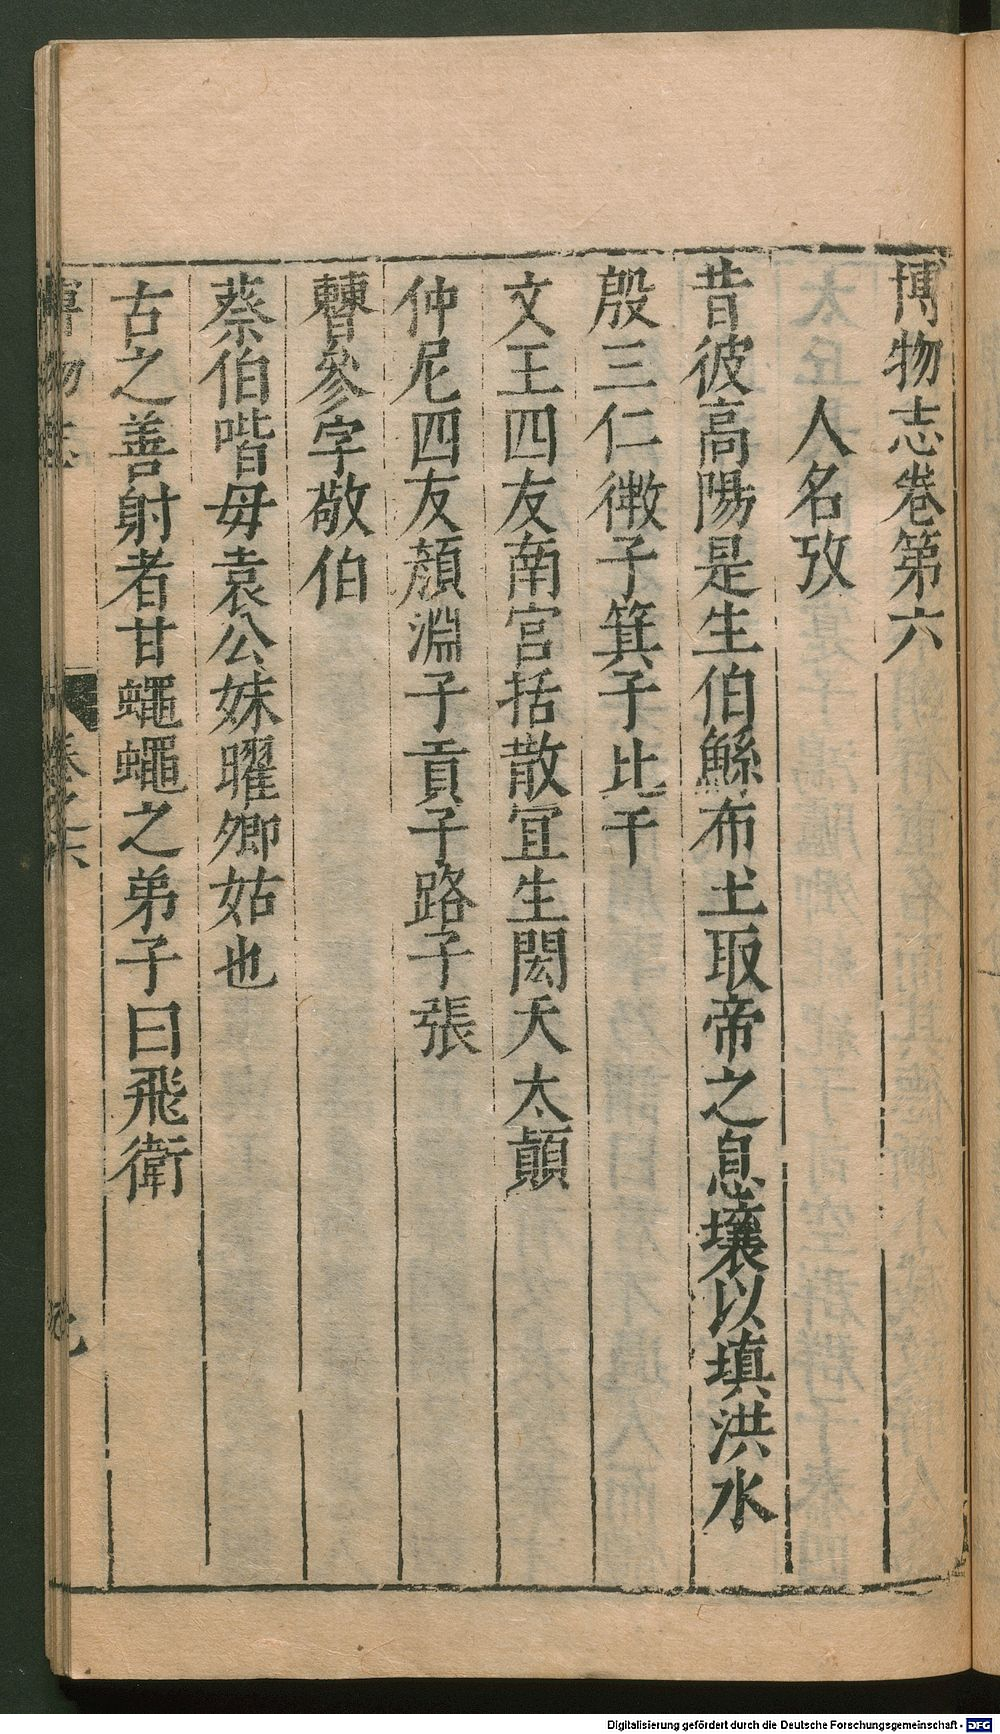 博物志卷第六
人名攷
昔彼高陽是生伯鯀布土取帝之息壤以填洪水
殷三仁微子箕子比干
文王四友南宮括散宜生閎夭太顛
仲尼四友顏淵子貢子路子張
曹參字敬伯
蔡伯喈母袁公妹曜卿姑也
古之善射者甘蠅蠅之弟子曰飛衛
博物志
卷之六
Digitalisierung gefördert durch die Deutsche Forschungsgemeinschaft - DFG